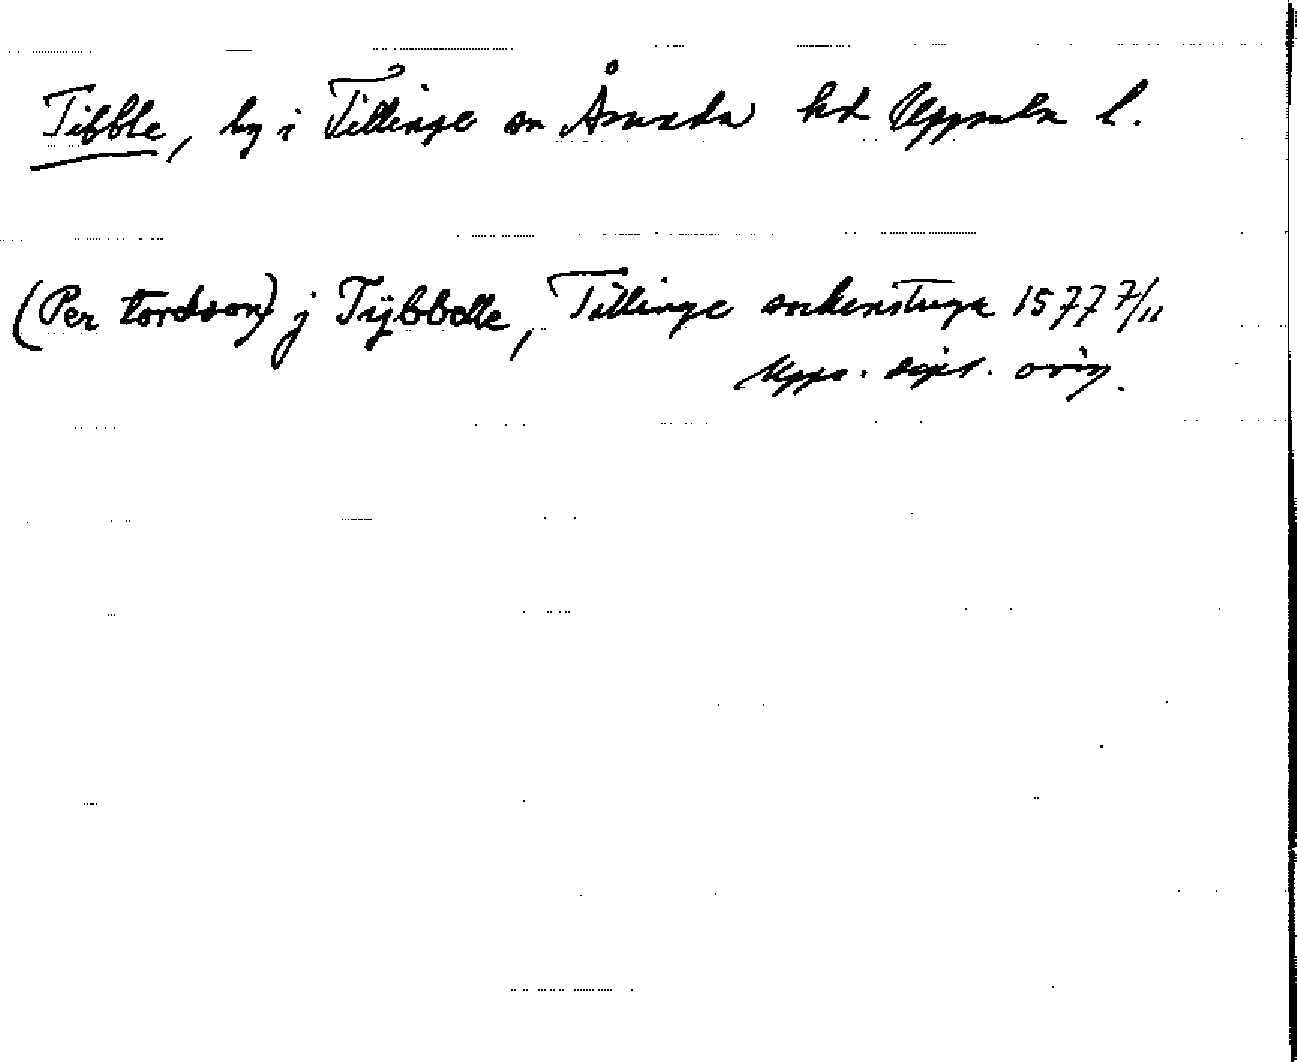 Tibble, by i Tillinge sn Åsunda hd Uppsala l.
(Per tordson) j Tÿbbelle, Tillinge sockenstuga 1577 7/11
Upps. dipl. orig.